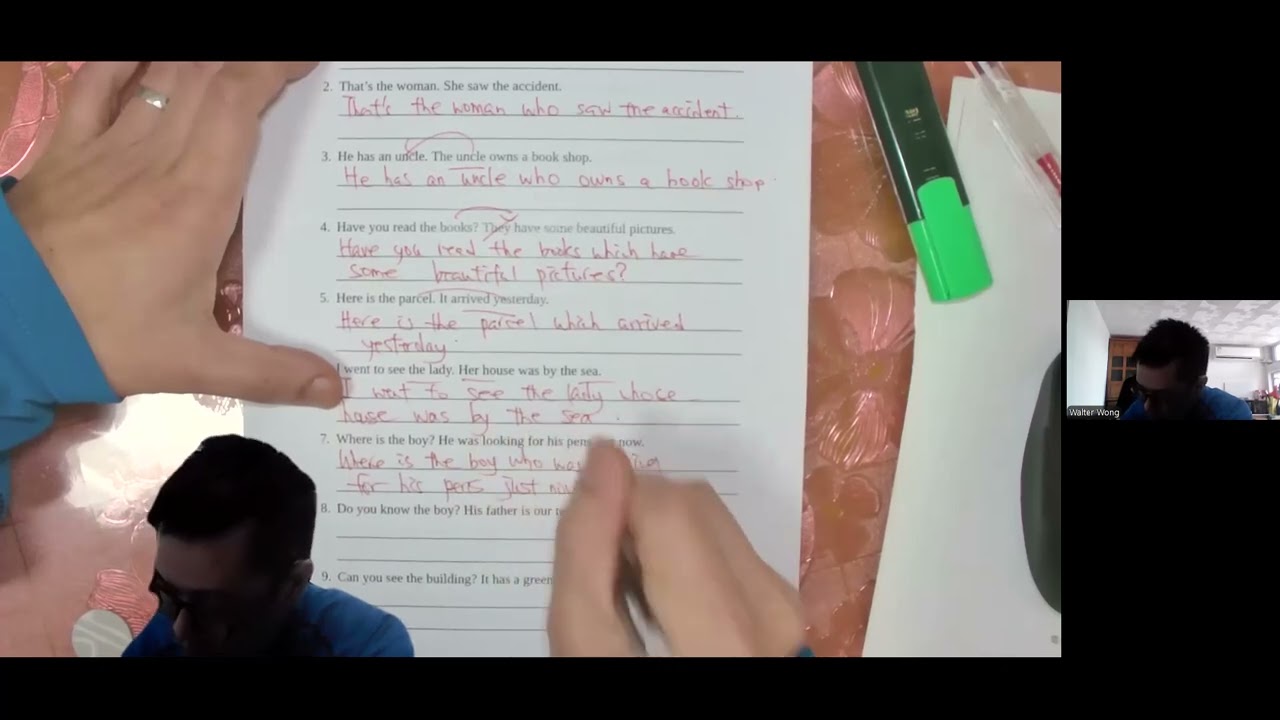 2. That's the woman. She saw the accident.
That's the woman who saw the accident.
3. He has an uncle. The uncle owns a book shop.
He has an uncle who owns a book shop.
4. Have you read the books? They have some beautiful pictures.
Have you read the books which have
some beautiful pictures?
5. Here is the parcel. It arrived yesterday.
Here is the parcel which arrived
yesterday.
I went to see the lady. Her house was by the sea.
I wet to see the lady whose
house was by the sea.
7. Where is the boy? He was looking for his pens now.
Where is the boy who was
for his pens just
8. Do you know the boy? His father is our
9. Can you see the building? It has a green
Walter Wong